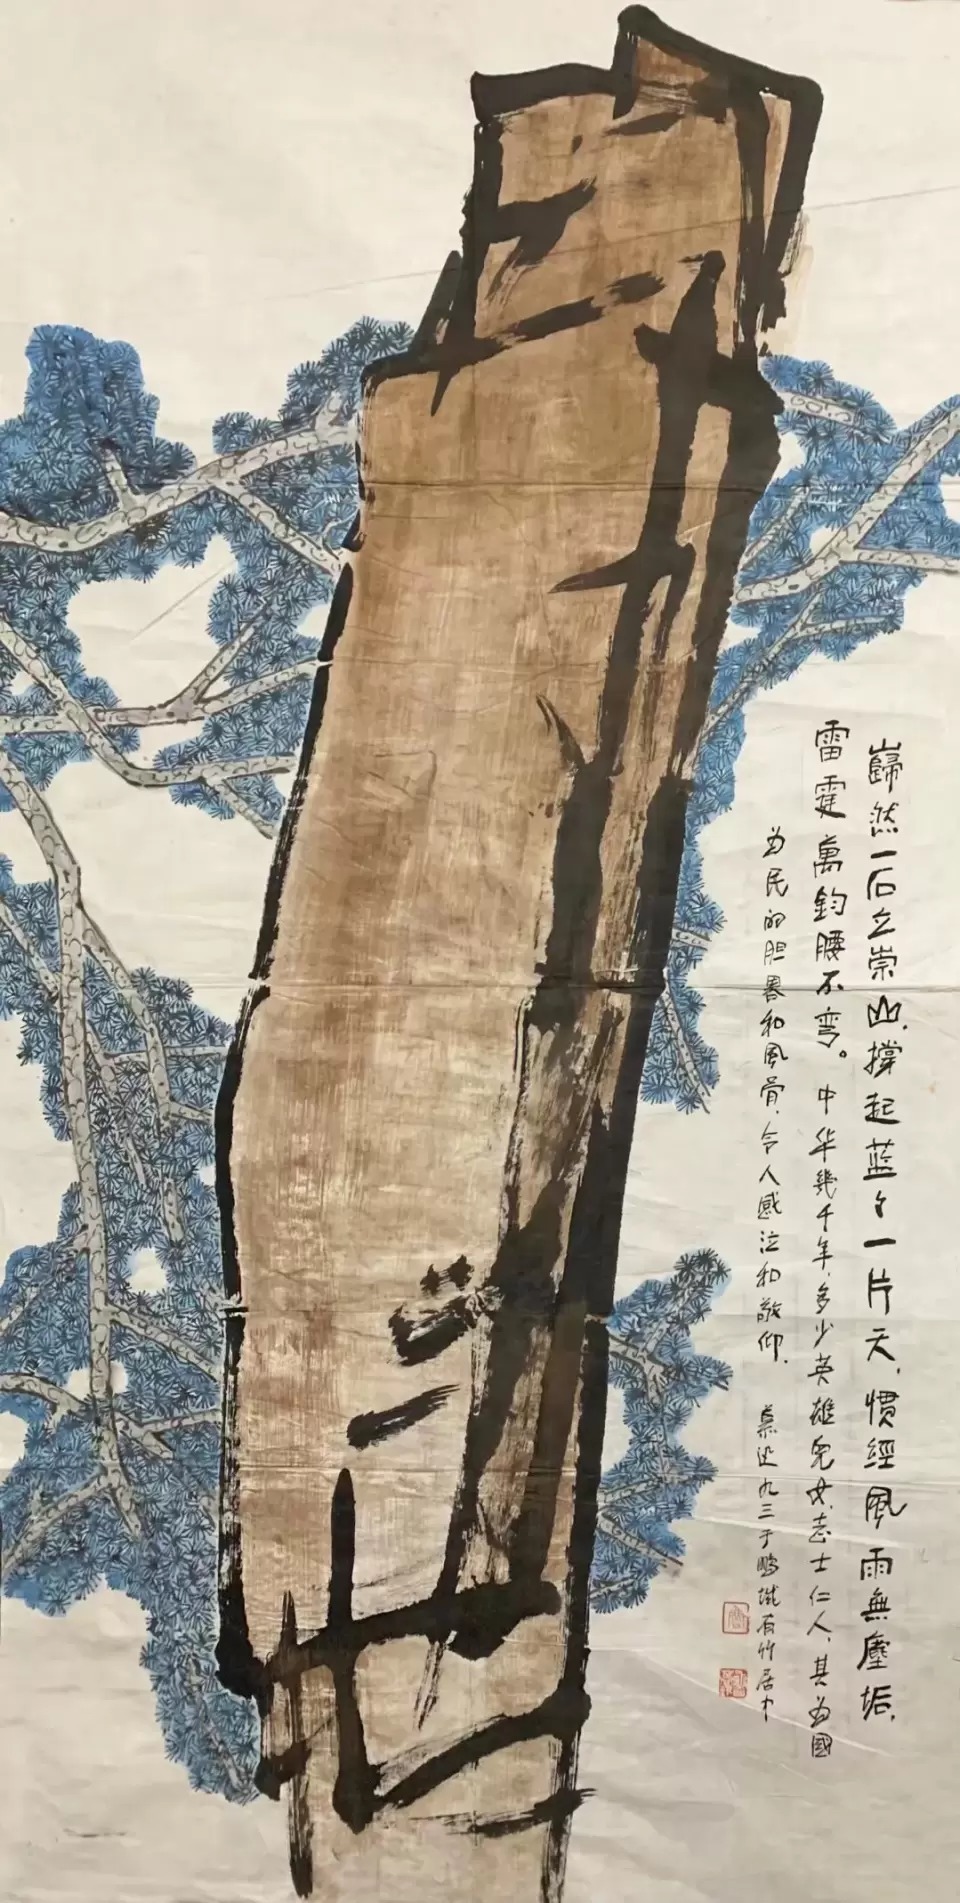 巋然一石立崇山，撐起蓝々一片天，慣經風雨無塵垢，
雷霆萬鈞腰不弯。中华幾千年，多少英雄児女，志士仁人，其为國
为民的胆畧和風骨，令人感泣和敬仰．
九三于鵬城有竹居中